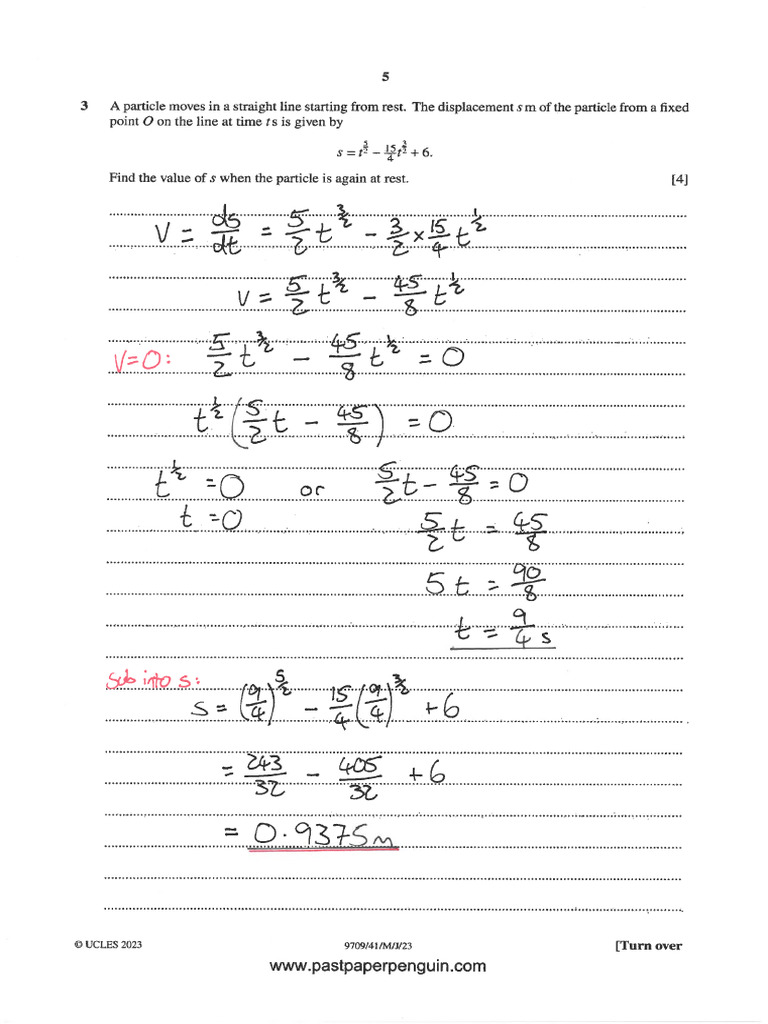 5
3 A particle moves in a straight line starting from rest. The displacement s m of the particle from a fixed
point O on the line at time t s is given by
s = t^(5/2) − 15/4 t^(3/2) + 6.
Find the value of s when the particle is again at rest. [4]
V = ds/dt = 5/2 t^(3/2) − 3/2 × 15/4 t^(1/2)
V = 5/2 t^(3/2) − 45/8 t^(1/2)
V=0: 5/2 t^(3/2) − 45/8 t^(1/2) = 0
t^(1/2) (5/2 t − 45/8) = 0
t^(1/2) = 0 or 5/2 t − 45/8 = 0
t = 0 5/2 t = 45/8
5t = 90/8
t = 9/4 s
Sub into s:
s = (9/4)^(5/2) − 15/4 (9/4)^(3/2) + 6
= 243/32 − 405/32 + 6
= 0.9375m
© UCLES 2023 9709/41/M/J/23 [Turn over
www.pastpaperpenguin.com